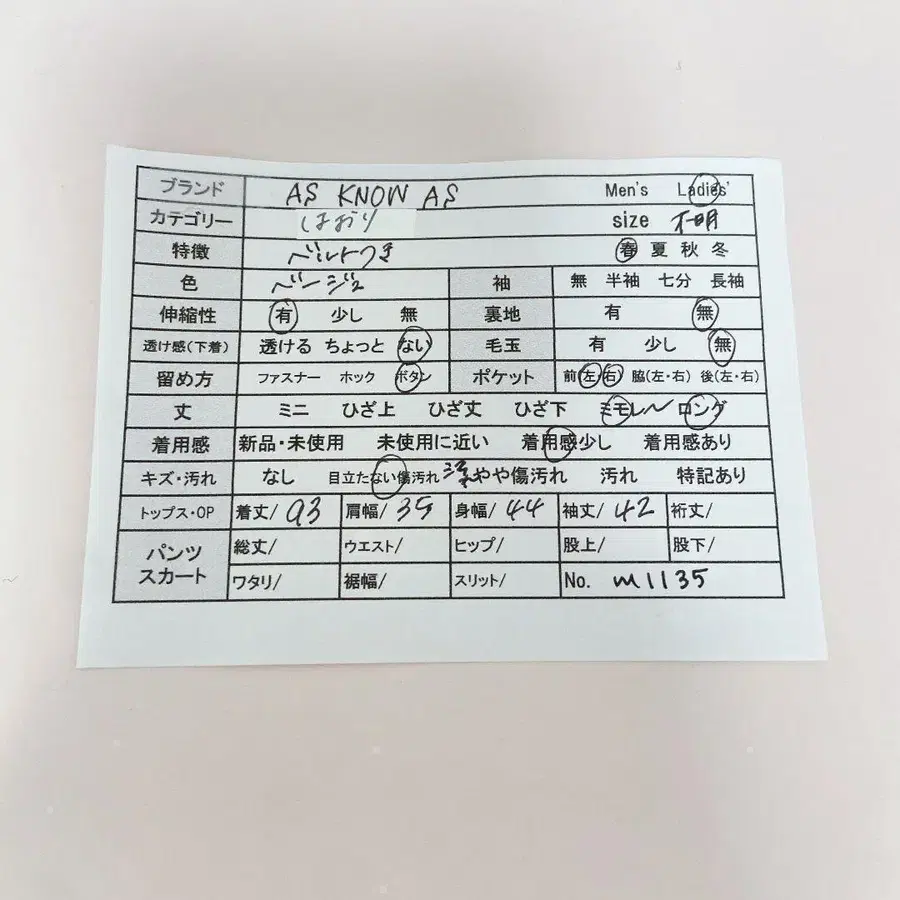 ブランド AS KNOW AS Men's Ladies'
カテゴリー はおり size 不明
特徴 ベルトつき 春 夏 秋 冬
色 ベージュ 袖 無 半袖 七分 長袖
伸縮性 有 少し 無 裏地 有 無
透け感(下着) 透ける ちょっと ない 毛玉 有 少し 無
留め方 ファスナー ホック ボタン ポケット 前(左・右) 脇(左・右) 後(左・右)
丈 ミニ ひざ上 ひざ丈 ひざ下 ミモレ〜 ロング
着用感 新品・未使用 未使用に近い 着用感少し 着用感あり
キズ・汚れ なし 目立たない傷汚れ やや傷汚れ 汚れ 特記あり
トップス・OP 着丈/ 93 肩幅/ 35 身幅/ 44 袖丈/ 42 裄丈/
パンツ スカート 総丈/ ウエスト/ ヒップ/ 股上/ 股下/
ワタリ/ 裾幅/ スリット/ No. m1135